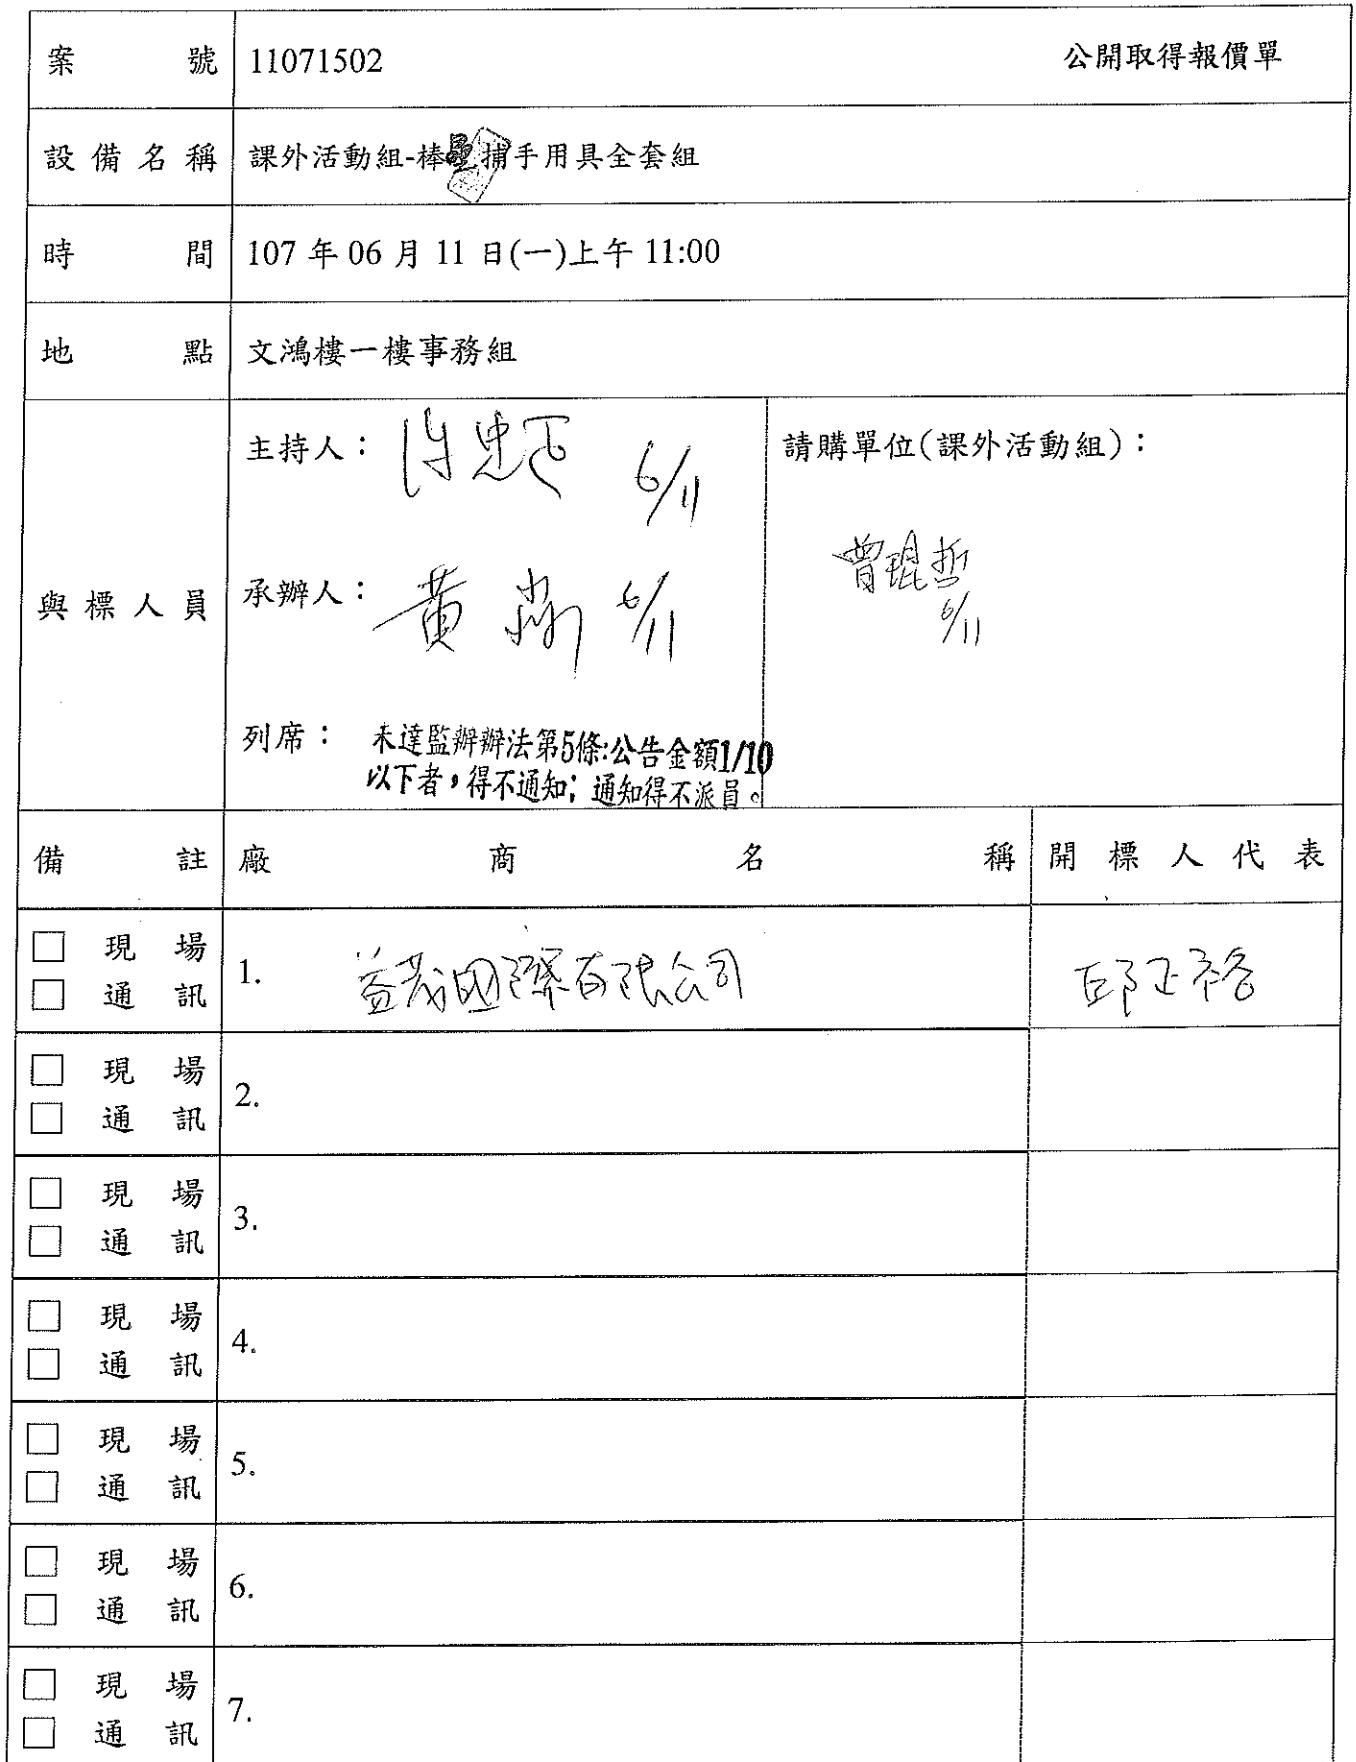 案號 11071502 公開取得報價單
設備名稱 課外活動組-棒壘捕手用具全套組
時間 107 年 06 月 11 日(一)上午 11:00
地點 文鴻樓一樓事務組
與標人員
主持人： 許忠 6/11
請購單位(課外活動組)：
曾琨哲
6/11
承辦人： 黃 6/11
列席： 未達監辦辦法第5條:公告金額1/10
以下者，得不通知; 通知得不派員。
備註 廠商名稱 開標人代表
□ 現場
□ 通訊
1. 益茂國際有限公司 邱正裕
□ 現場
□ 通訊
2.
□ 現場
□ 通訊
3.
□ 現場
□ 通訊
4.
□ 現場
□ 通訊
5.
□ 現場
□ 通訊
6.
□ 現場
□ 通訊
7.